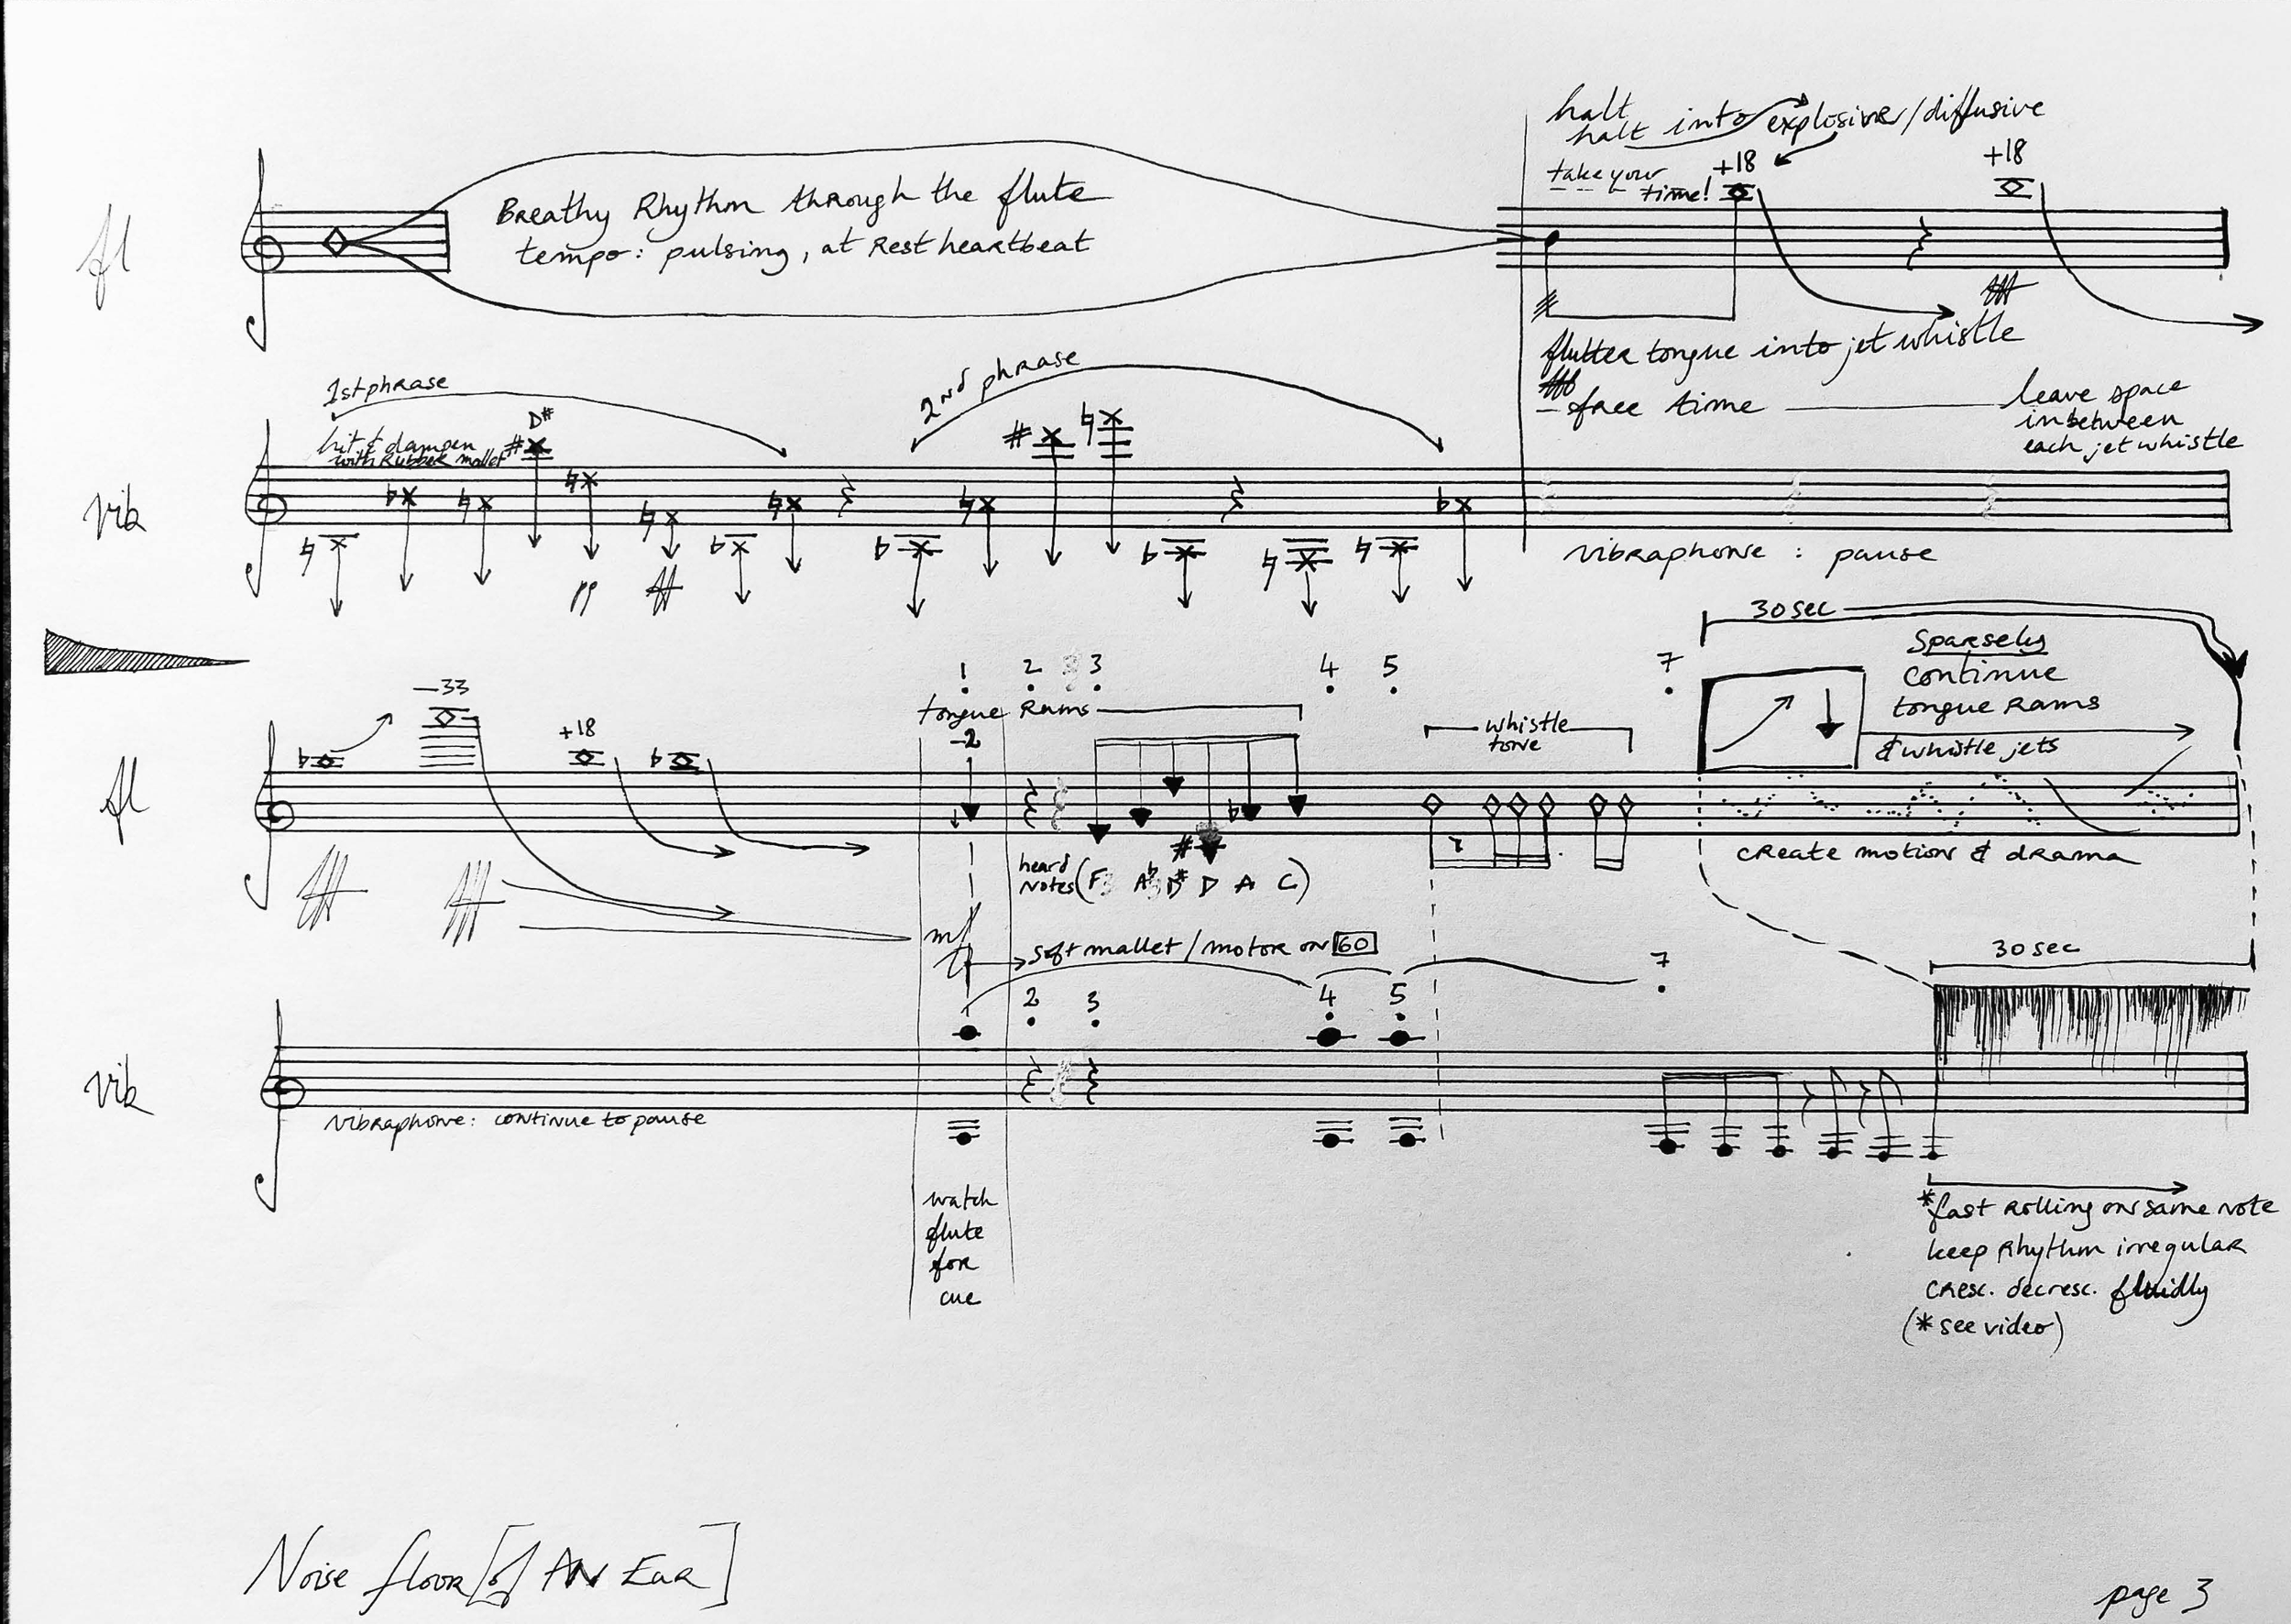 halt
halt into explosive/diffusive
take your time!
+18
+18
fl
Breathy Rhythm through the flute
tempo: pulsing, at Rest heartbeat
flutter tongue into jet whistle
fff
free time
leave space
inbetween
each jet whistle
1st phrase
2nd phrase
hit & dampen
with Rubber mallet
D#
vib
pp
ff
vibraphone : pause
30 sec
Sparsely
continue
tongue Rams
& whistle jets
-33
+18
1 2 3 4 5 7
tongue Rams
-2
whistle
tone
fl
create motion & drama
heard
notes (F A♭ D# D A C)
fff
mf
soft mallet / motor on 60
30 sec
2 3 4 5 7
vib
vibraphone: continue to pause
watch
flute
for
cue
*fast Rolling on same note
keep Rhythm irregular
cresc. decresc. fluidly
(* see video)
Noise floor [of AN EaR]
page 3